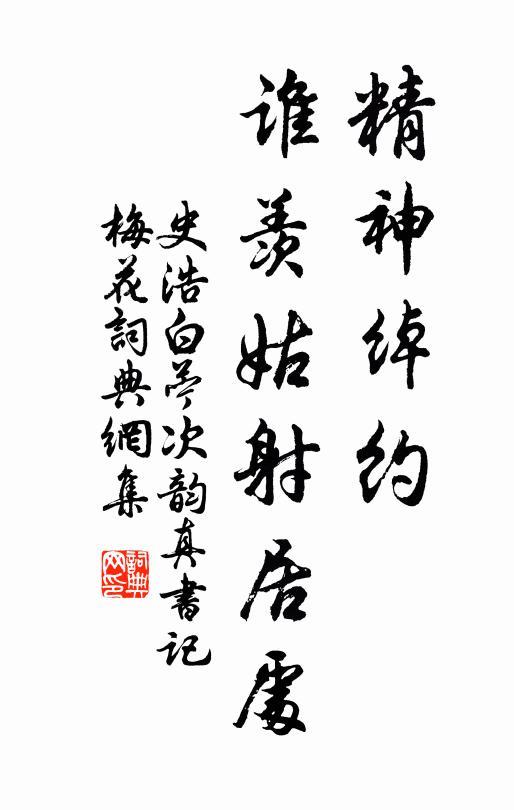 精神绰约
谁羡姑射居處
史浩白苎次韵真書記
梅花詞典網集
詞典网印